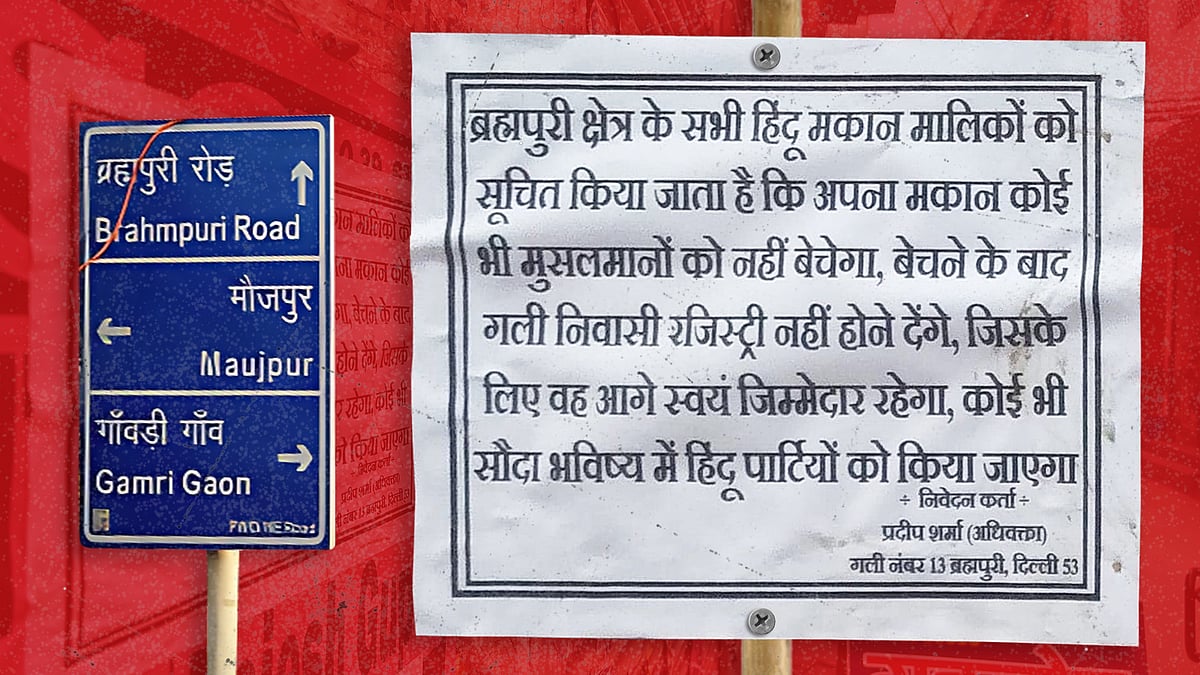 ब्रह्मपुरी रोड़
Brahmpuri Road
मौजपुर
Maujpur
गाँवड़ी गाँव
Gamri Gaon
ब्रह्मपुरी क्षेत्र के सभी हिंदू मकान मालिकों को
सूचित किया जाता है कि अपना मकान कोई
भी मुसलमानों को नहीं बेचेगा, बेचने के बाद
गली निवासी रजिस्ट्री नहीं होने देंगे, जिसके
लिए वह आगे स्वयं जिम्मेदार रहेगा, कोई भी
सौदा भविष्य में हिंदू पार्टियों को किया जाएगा
÷ निवेदन कर्ता ÷
प्रदीप शर्मा (अधिवक्ता)
गली नंबर 13 ब्रह्मपुरी, दिल्ली 53